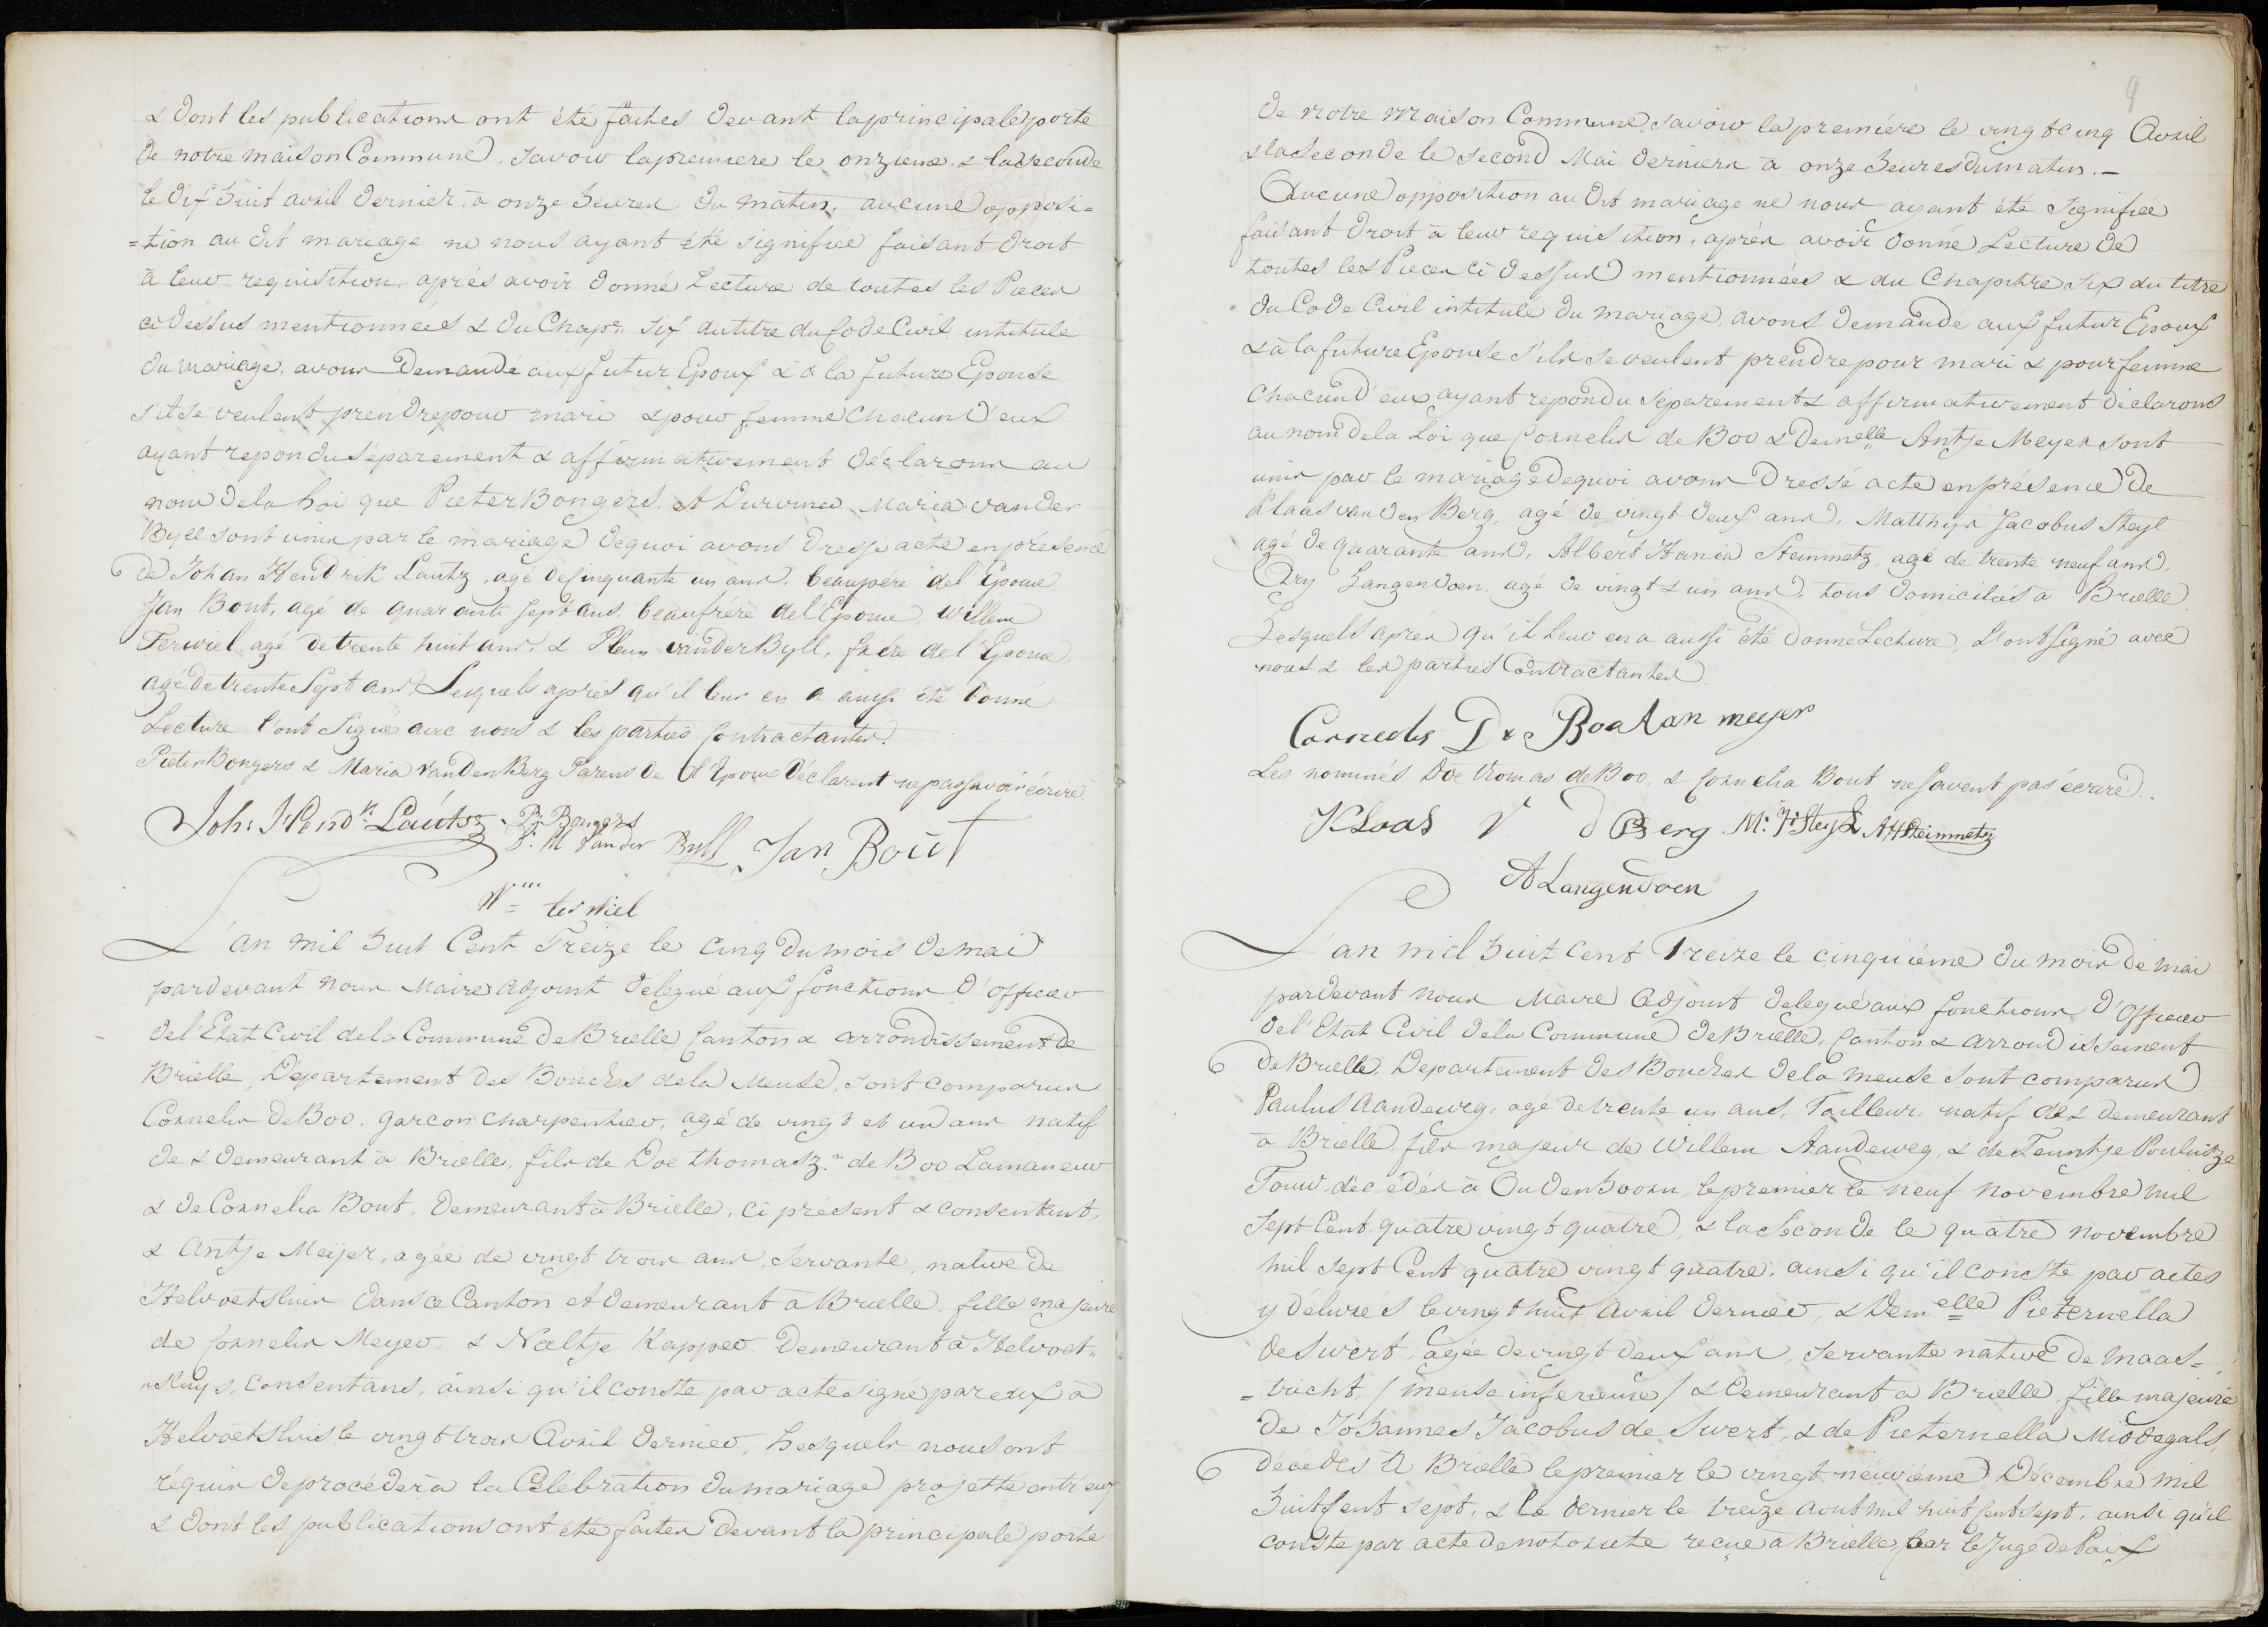 & dont les publications ont été faites devant la principale porte
de notre maison Commune, savoir la premiere le onzieme & la seconde
le dix huit avril dernier à onze heures du matin, aucune opposi=
=tion au dit mariage ne nous ayant été signifiée faisant droit
à leur requisition, après avoir donné Lecture de toutes les Pieces
ci dessus mentionnées & du Chapre. six du titre du Code Civil intitulé
du mariage, avons Demandé aux futur Epoux & à la future Epouse
s'ils se veulent prendre pour mari & pour femme chacun d'eux
ayant repondu séparement & affirmativement déclarons au
nom de la Loi que Pieter Bongers, et Maria van der
Byll sont unis par le mariage de quoi avons dressé acte en présence
de Johan Hendrik Lautz, agé de cinquante un ans, beaupère de l'Epouse
Jan Bout, agé de quarante sept ans, beaufrère de l'Epouse, Willem
Terwiel agé de trente huit ans & van der Byll, frère de l'Epouse
agé de trente Sept ans, Lesquels après qu'il leur en a aussi été donné
Lecture l'ont Signé avec nous & les parties Contractantes.
Pieter Bongers & Maria van den Berg Parens de l'Epoux déclarent ne pas savoir écrire.
Joh: Hendk: Lautz P: Bongers
D: M van der Byll Jan Bout
Wm ter Wiel
L'an mil huit Cent Treize le cinq du mois de mai
pardevant nous Maire adjoint delegué aux fonctions d'officier
de l'Etat Civil de la Commune de Brielle Canton & arrondissement de
Brielle, Département des Bouches de la Meuse, sont comparus
Cornelis de Boo, garcon charpentier, agé de vingt et un ans natif
de & demeurant à Brielle, fils de Doe thomasz.n de Boo Lamaneur
& de Cornelia Bout, demeurant à Brielle, ci présent & consentant,
& Antje Meijer, agée de vingt trois ans, servante, native de
Helvoetsluis dans ce Canton et demeurant à Brielle, fille majeure
de Cornelis Meyer, & Neeltje Kapper demeurant à Helvoet=
=sluys, consentans, ainsi qu'il conste par acte signé par eux à
Helvoetsluis le vingt trois Avril dernier, Lesquels nous ont
réquis de procéder à la Célébration du mariage projetté entr'eux
& dont les publications ont été faites devant la principale porte
9
de notre maison Commune, savoir la premiére le vingt cinq Avril
& la Seconde le second Mai derniers à onze heures du matin.—
Aucune opposition au dit mariage ne nous ayant été signifiée
faisant droit à leur requisition, après avoir donné Lecture de
toutes les Pieces ci dessus mentionnées & du Chapitre six du titre
du Code Civil intitulé du mariage, avons demandé aux futur Epoux
& à la future Epouse s'ils se veulent prendre pour mari & pour femme
chacun d'eux ayant repondu séparement & affirmativement déclarons
au nom de la Loi que Cornelis de Boo & Demelle Antje Meyer sont
unis par le mariage de quoi avons dressé acte en présence de
Klaas van den Berg, agé de vingt deux ans, Matthys Jacobus Steyl
agé de quarante ans, Albert Hania Steinmetz, agé de trente neuf ans,
Ary Langendoen, agé de vingt & un ans, tous domiciliés à Brielle,
Lesquels apres qu'il leur en a aussi été donné Lecture, l'ont signé avec
nous & les parties Contractantes.
Cornelis De Boo Antan meyer
Les nommés Doe thomas de Boo, & Cornelia Bout ne savent pas écrire.
Klaas V d Berg M: J: Steyl AHSteinmetz
A Langendoen
L'an mil huit cent Treize le cinquiéme du mois de mai
pardevant nous Maire Adjoint delegué aux fonctions d'officier
de l'Etat Civil de la Commune de Brielle, Canton & arrondissement
de Brielle, Departement des Bouches de la meuse sont comparus
Paulus Aandeweg, agé de trente un ans, Tailleur natif de & demeurant
à Brielle fils majeur de Willem Aandeweg, & de Teuntje Pouluisze
Touw, décédés à Oudenhoorn, le premier le neuf novembre mil
sept Cent quatre vingt quatre, & la seconde le quatre novembre
mil sept Cent quatre vingt quatre, ainsi qu'il conste par actes
y délivrés le vingt huit avril dernier, & Demelle Pieternella
de Swert, agée de vingt deux ans, servante native de maas=
=tricht, / meuse inferieure / & demeurant à Brielle, fille majeure
de Johannes Jacobus de Swert, & de Pieternella Middegals,
décédés à Brielle le premier le vingt neuviéme Décembre mil
huit Cent sept, & le dernier le treize aout mil huit Cent sept, ainsi qu'il
conste par acte de notorieté reçue à Brielle, par le Juge de Paix